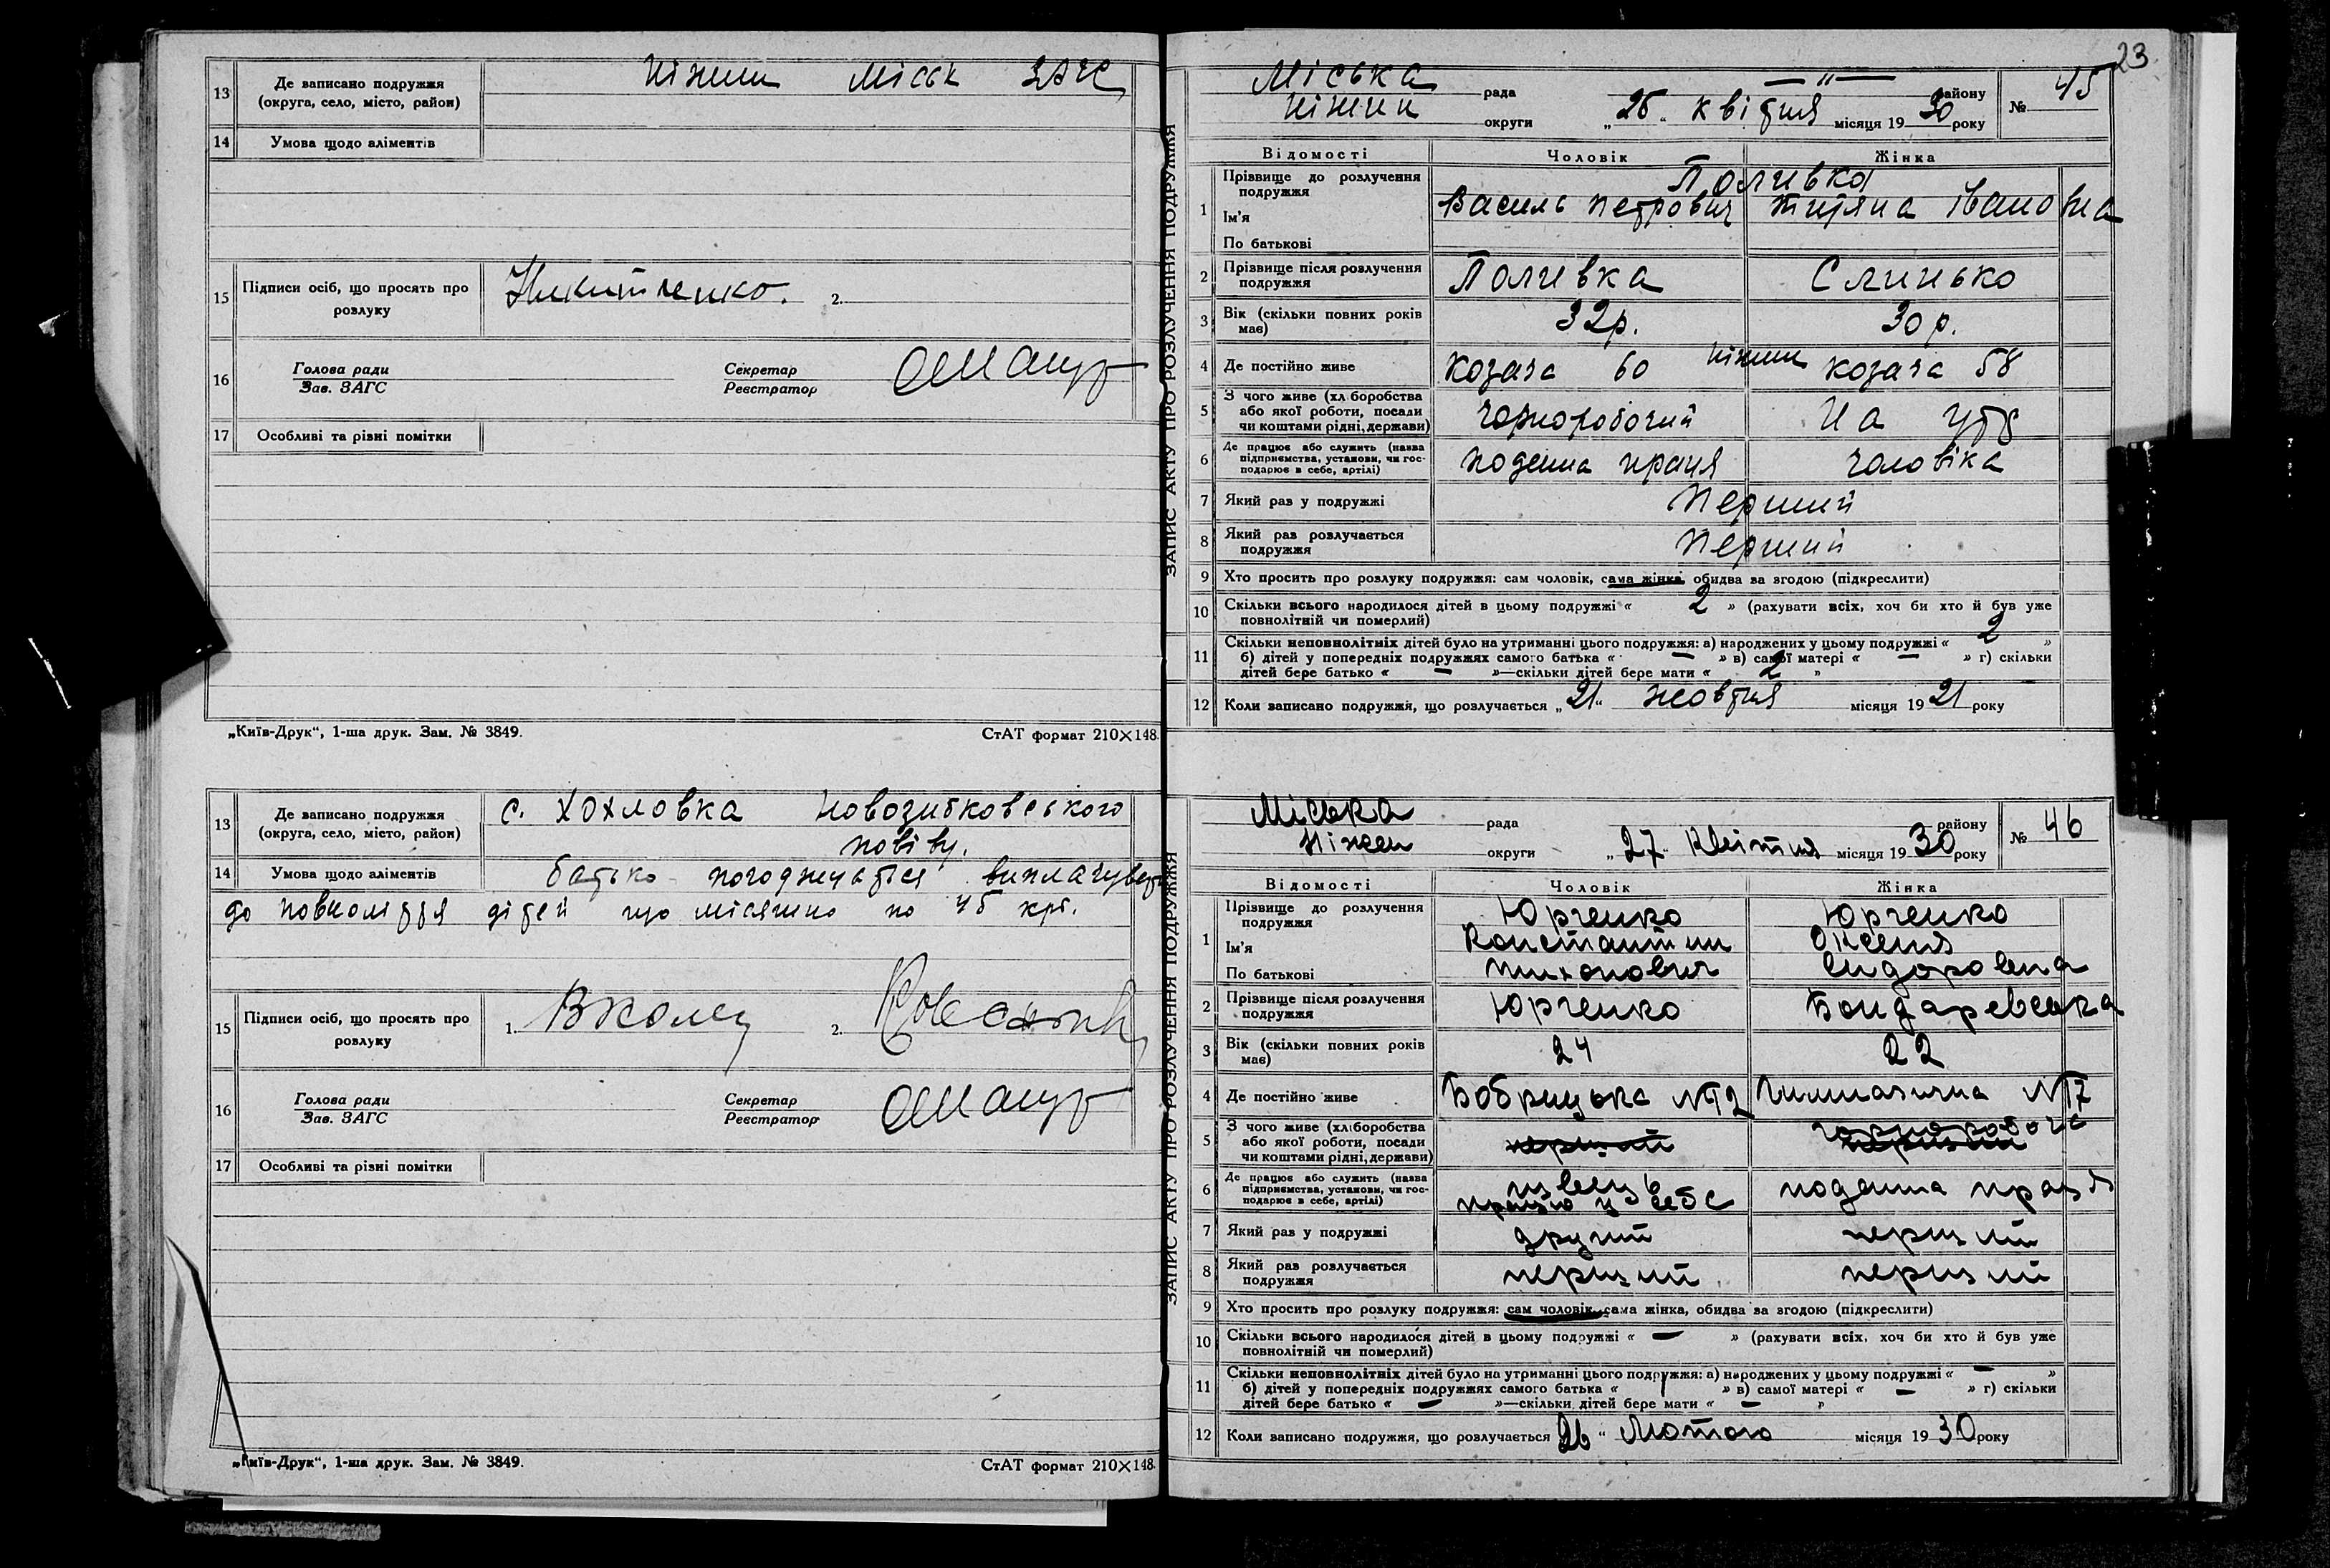 13 Де записано подружжя
(округа, село, місто, район)
Ніжин міськ ЗАГС
14 Умова щодо аліментів
15 Підписи осіб, що просять про
розлуку
Никитченко. 2.
16 Голова ради
Зав. ЗАГС
Секретар
Реєстратор
17 Особливі та різні помітки
„Київ-Друк“, 1-ша друк. Зам. № 3849.
СтАТ формат 210×148.
13 Де записано подружжя
(округа, село, місто, район)
с. Хохловка Новозибковського
повіту.
14 Умова щодо аліментів
батько погоджується виплачувать
до повноліття дітей що місячно по 45 крб.
15 Підписи осіб, що просять про
розлуку
1. 2.
16 Голова ради
Зав. ЗАГС
Секретар
Реєстратор
17 Особливі та різні помітки
„Київ-Друк“, 1-ша друк. Зам. № 3849.
СтАТ формат 210×148.
ЗАПИС АКТУ ПРО РОЗЛУЧЕННЯ ПОДРУЖЖЯ
23
Міська рада —"— району
Ніжин округи „26“ квітня місяця 1930 року
№ 45
Відомості Чоловік Жінка
1 Прізвище до розлучення
подружжя
Поливка
Ім'я
Василь Петрович Титяна Івановна
По батькові
2 Прізвище після розлучення
подружжя
Поливка Слинько
3 Вік (скільки повних років
має)
32р. 30 р.
4 Де постійно живе
Козача 60 Ніжин Козача 58
5 З чого живе (хліборобства
або якої роботи, посади
чи коштами рідні, держави)
чорноробочий На утр
6 Де працює або служить (назва
підприємства, установи, чи гос-
подарює в себе, артілі)
поденна праця чоловіка
7 Який раз у подружжі
Перший
8 Який раз розлучається
подружжя
Перший
9 Хто просить про розлуку подружжя: сам чоловік, сама жінка, обидва за згодою (підкреслити)
10 Скільки всього народилося дітей в цьому подружжі « 2 » (рахувати всіх, хоч би хто й був уже
повнолітній чи померлий)
11 Скільки неповнолітніх дітей було на утриманні цього подружжя: а) народжених у цьому подружжі « 2 »
б) дітей у попередніх подружжях самого батька « — » в) самої матері « — » г) скільки
дітей бере батько « — »—скільки дітей бере мати « 2 »
12 Коли записано подружжя, що розлучається „21“ жовтня місяця 1921 року
ЗАПИС АКТУ ПРО РОЗЛУЧЕННЯ ПОДРУЖЖЯ
Міська рада району
Ніжен округи „27“ Квітня місяця 1930 року
№ 46
Відомості Чоловік Жінка
1 Прізвище до розлучення
подружжя
Юрченко Юрченко
Ім'я
Константин Оксеня
По батькові
Тихонович Сидоровена
2 Прізвище після розлучення
подружжя
Юрченко Бондаревська
3 Вік (скільки повних років
має)
24 22
4 Де постійно живе
Бобрицька №12 Гимназична №17
5 З чого живе (хліборобства
або якої роботи, посади
чи коштами рідні, держави)
перший чорноробоча
перший
6 Де працює або служить (назва
підприємства, установи, чи гос-
подарює в себе, артілі)
швець поденна праця
працю у себе
7 Який раз у подружжі
другий перший
8 Який раз розлучається
подружжя
перший перший
9 Хто просить про розлуку подружжя: сам чоловік, сама жінка, обидва за згодою (підкреслити)
10 Скільки всього народилося дітей в цьому подружжі « — » (рахувати всіх, хоч би хто й був уже
повнолітній чи померлий)
11 Скільки неповнолітніх дітей було на утриманні цього подружжя: а) народжених у цьому подружжі « — »
б) дітей у попередніх подружжях самого батька « 1 » в) самої матері « — » г) скільки
дітей бере батько « — »—скільки дітей бере мати « — »
12 Коли записано подружжя, що розлучається 26 “ Лютого місяця 1930 року